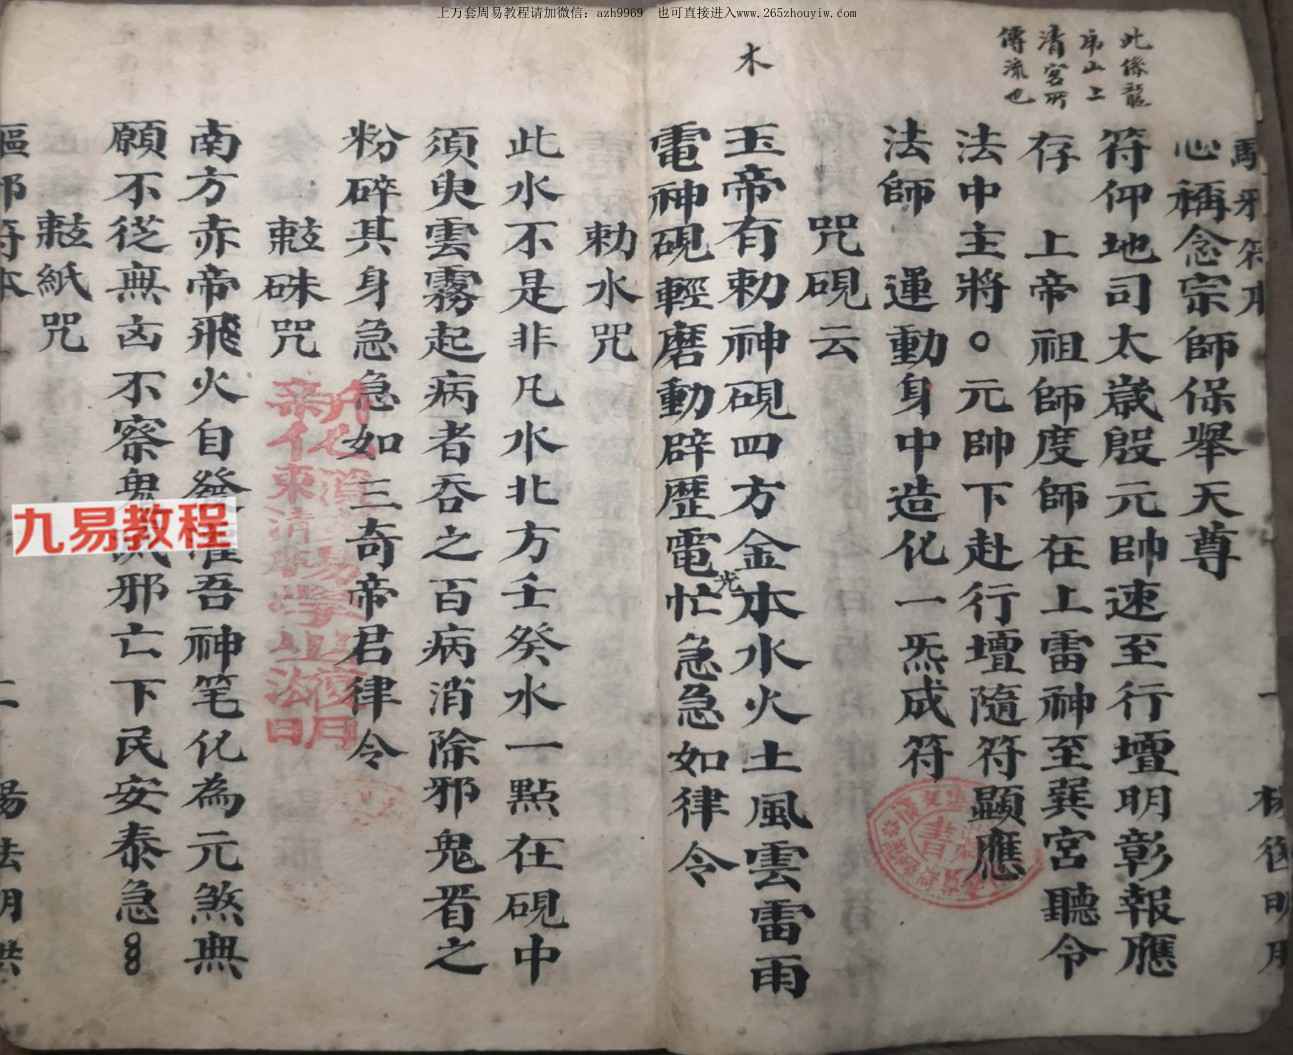 上万套周易教程请加微信：azh9969 也可直接进入www.265zhouyiw.com
此係龍
席山上
清宮所
傳流也
木
驅邪符本 一
心稱念宗師保舉天尊
符仰地司太歲殷元帥速至行壇明彰報應
存 上帝祖師度師在上雷神至巽宮聽令
法中主將○元帥下赴行壇隨符顯應
法師 運動身中造化一炁成符
咒硯云
玉帝有勅神硯四方金木水火土風雲雷雨
電神硯輕磨動辟歷電光忙急急如律令
勅水咒
此水不是非凡水北方壬癸水一點在硯中
須臾雲霧起病者吞之百病消除邪鬼者之
粉碎其身急急如三奇帝君律令
敕硃咒
南方赤帝飛火自發 吾神笔化為元煞無
願不從無凶不察鬼 邪亡下民安泰急
敕紙咒
驅邪符本 二 楊法明
九易教程